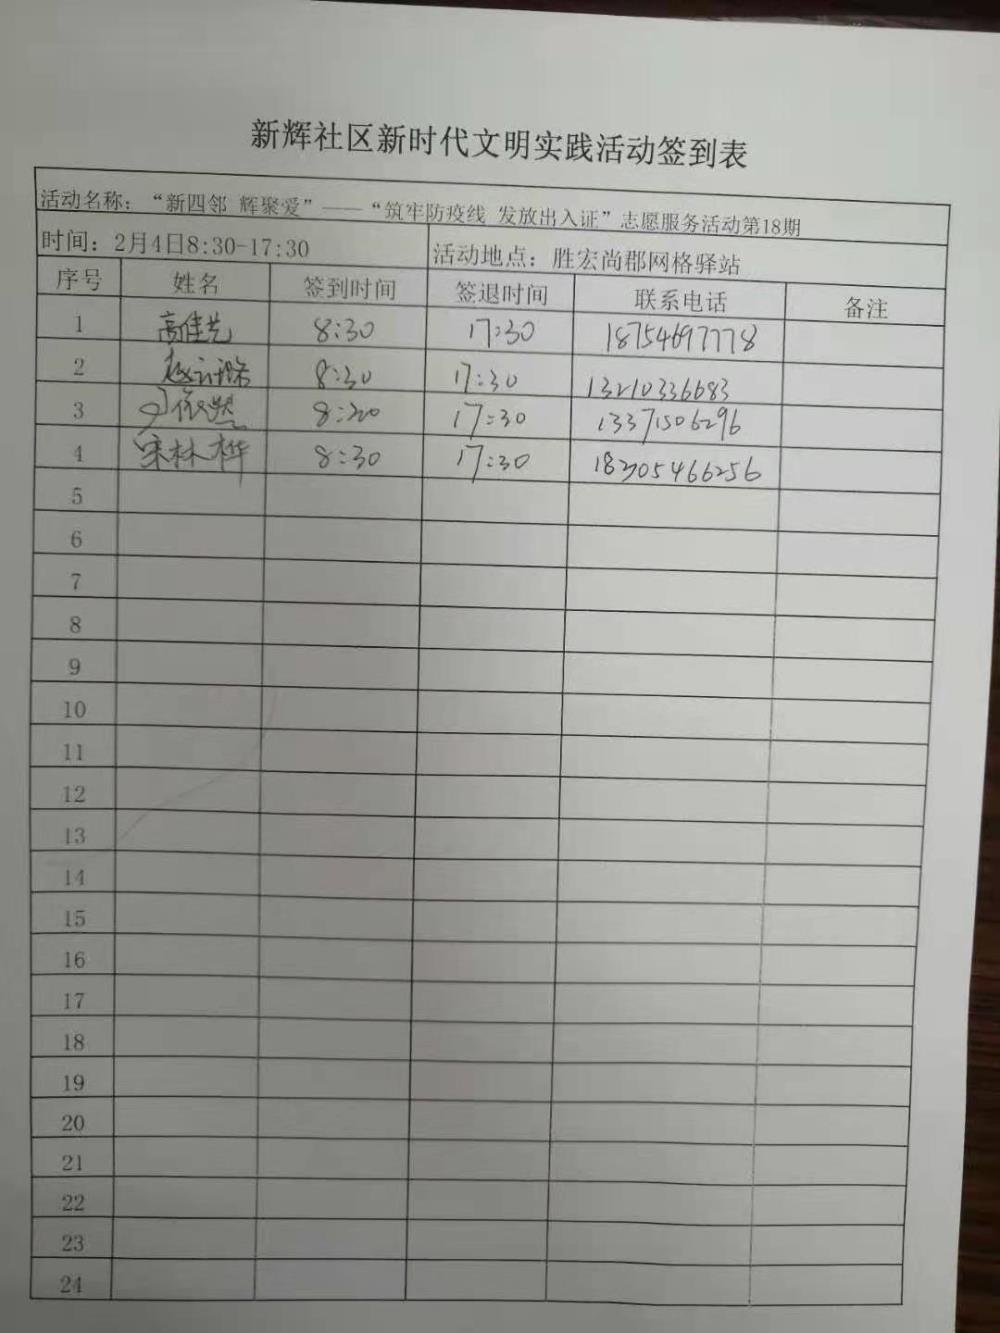 新辉社区新时代文明实践活动签到表
活动名称：“新四邻 辉聚爱”——“筑牢防疫线 发放出入证”志愿服务活动第18期
时间：2月4日8:30-17:30 活动地点：胜宏尚郡网格驿站
序号 姓名 签到时间 签退时间 联系电话 备注
1 高佳 8:30 17:30 18754697778
2 赵 8:30 17:30 13210336683
3 8:30 17:30 13371506296
4 宋林桦 8:30 17:30 18305466256
5
6
7
8
9
10
11
12
13
14
15
16
17
18
19
20
21
22
23
24